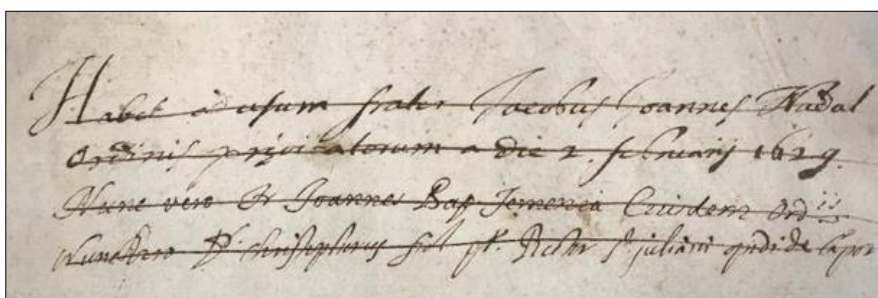 Habet ad usum frater Jacobus Joannes Nadal
Ordinis prędicatorum a die 2. februarij 1629.
Nunc vero Fr Joannes Bap Jemenez Eiusdem Ordis
Nunc vero Dr. christophorus sit pr. Rector st juliani